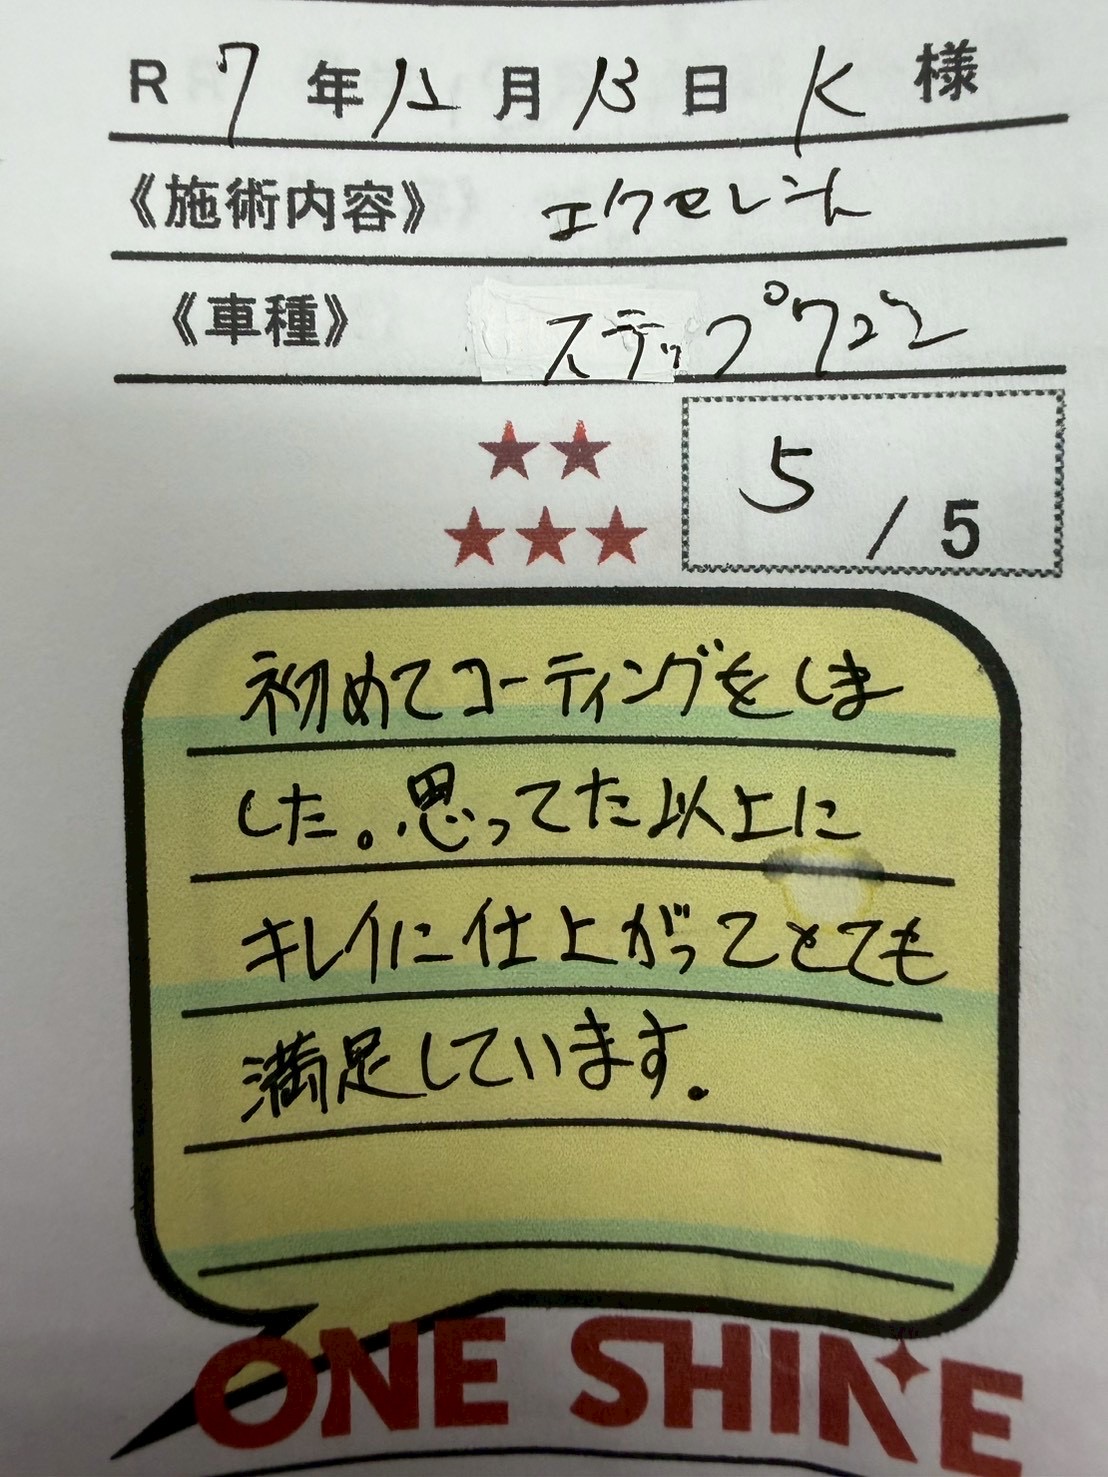 R 7 年 12 月 13 日 K 様
《施術内容》 エクセレント
《車種》 ステップワゴン
★★
★★★
5 / 5
初めてコーティングをしま
した。思ってた以上に
キレイに仕上がってとても
満足しています.
ONE SHINE